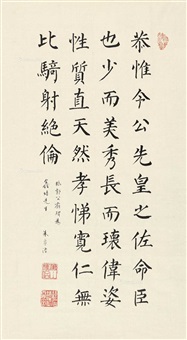 恭惟今公先皇之佐命臣
也少而美秀長而瓌偉姿
性質直天然孝悌寬仁無
比騎射絕倫